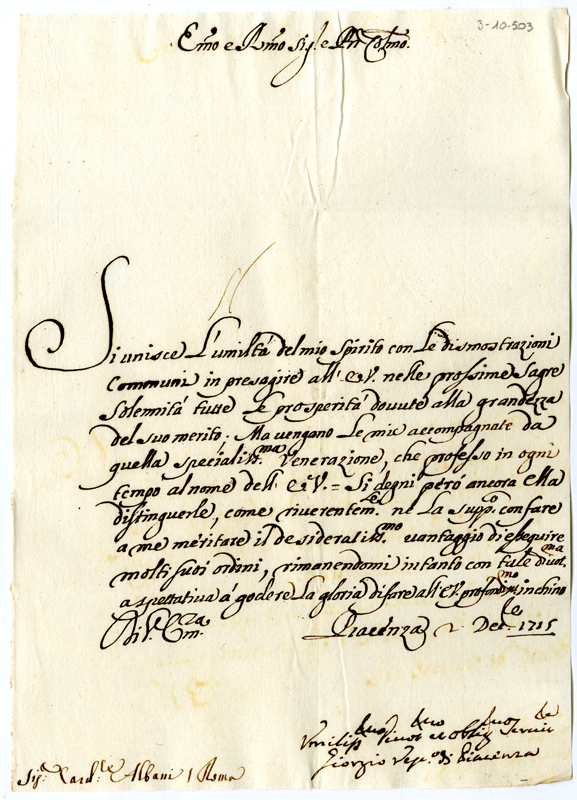 3-10-503
Emo e Rmo Sig.e Pñ Colmo.
Si unisce l'umiltà del mio Spirito con le dismostrazioni
Communi in presagire all' E.V. nelle prossime Sagre
Solennità tutte le prosperità dovute alla grandezza
del suo merito; Ma vengano le mie accompagnate da
quella specialiss.ma Venerazione, che professo in ogni
tempo al nome dell' E.V. = Si degni però ancora ella
distinguerle, come riverentem.te ne la supp.co con fare
a me meritare il desideratiss.mo vantaggio di eseguire
molti suoi ordini, rimanendomi intanto con tale divot.ma
aspettativa à godere la gloria di fare all' E.V. profondiss.mo inchino
Di V. Em.za
Piacenza 2 Dec.le 1715
Umiliss.mo divot.mo et oblig.mo Serv.e
Giorgio Vesc.o di Piacenza
Sig.r Card.le Albani / Roma